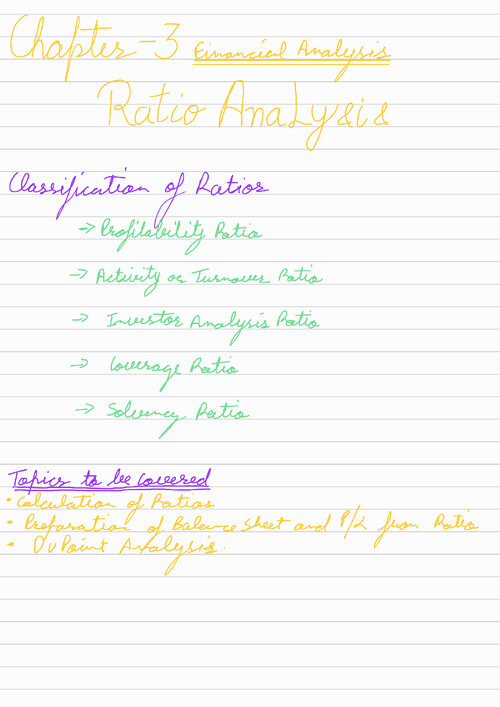 Chapter-3 Financial Analysis
Ratio Analysis
Classification of Ratios
→ Profitability Ratio
→ Activity or Turnover Ratio
→ Investor Analysis Ratio
→ Coverage Ratio
→ Solvency Ratio
Topics to be covered
• Calculation of Ratios
• Preparation of Balance Sheet and P/L from Ratio
• DuPoint Analysis.